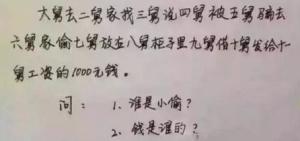 大舅去二舅家找三舅说四舅被五舅骗去
六舅家偷七舅放在八舅柜子里九舅借十舅发给十一
舅工资的1000元钱。
问：1. 谁是小偷？
2. 钱是谁的？